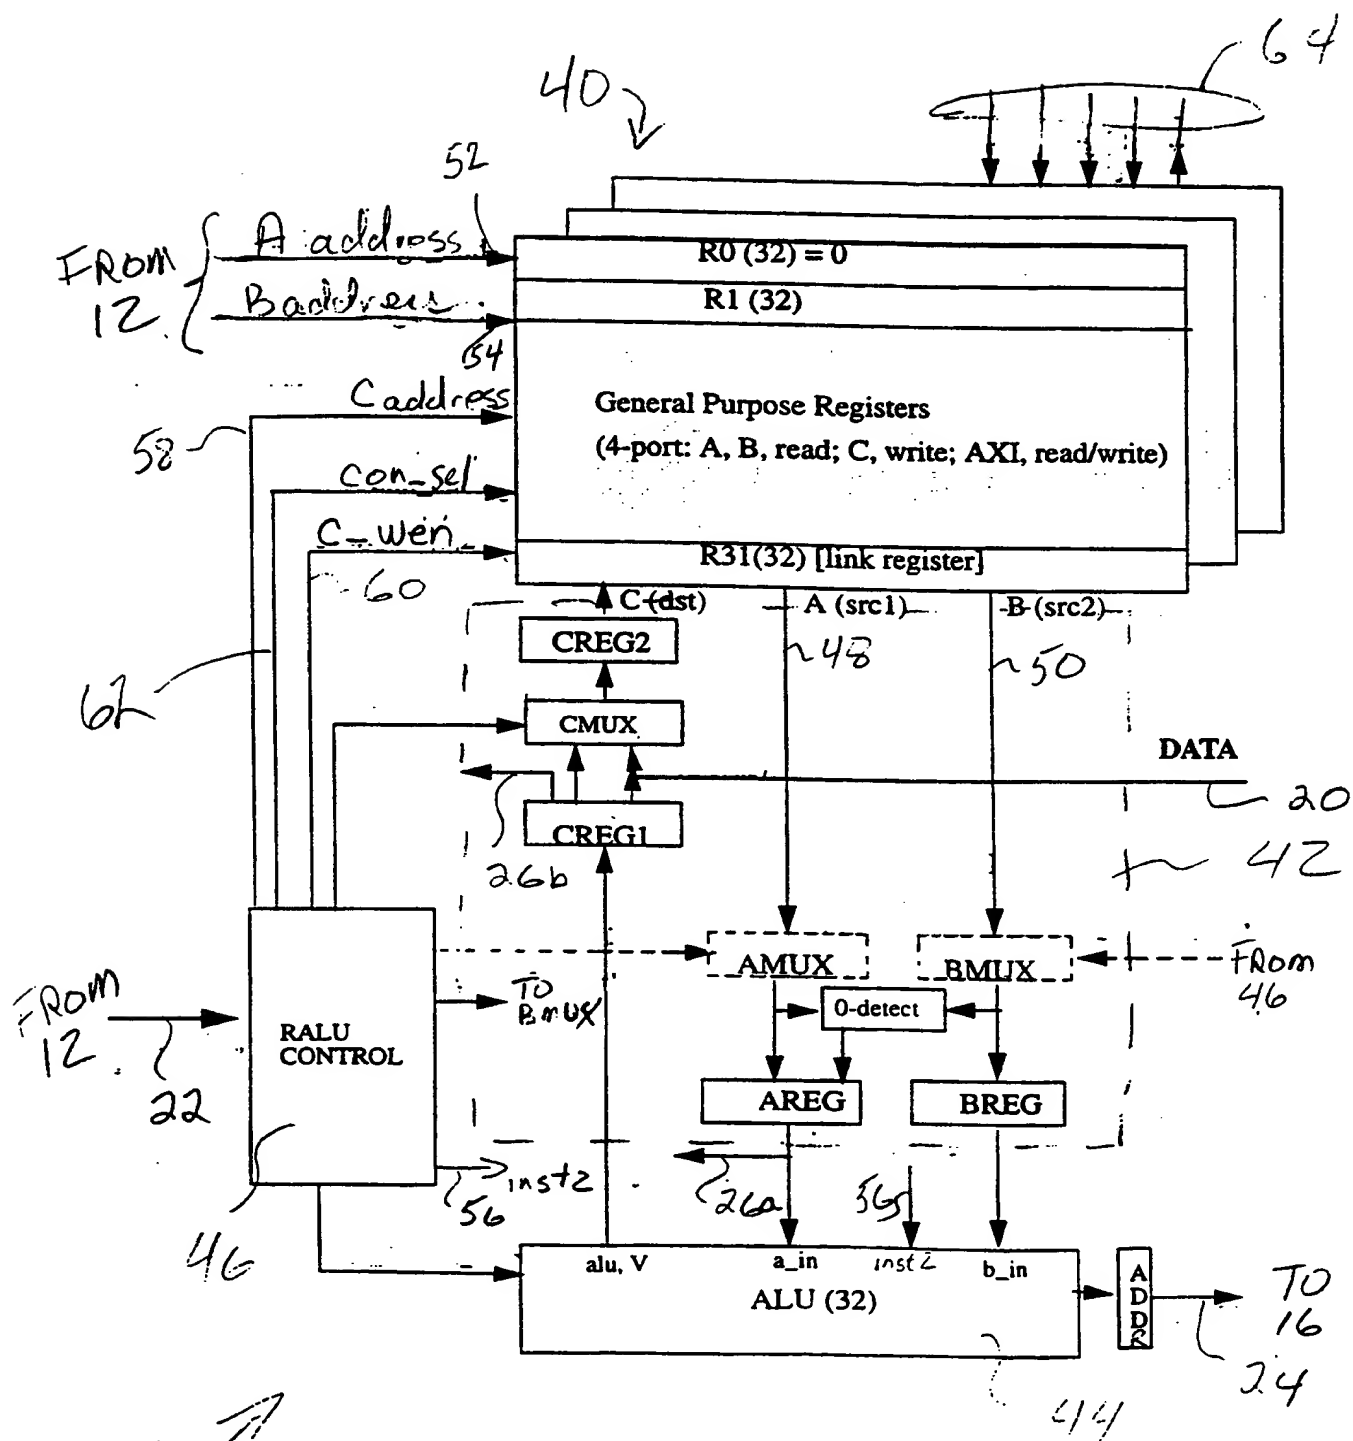 64
40
52
FROM
12
A address
R0 (32) = 0
B address
R1 (32)
54
C address
General Purpose Registers
(4-port: A, B, read; C, write; AXI, read/write)
58
con_sel
C_wen
R31(32) [link register]
60
C (dst)
A (src1)
B (src2)
CREG2
48
50
62
CMUX
DATA
20
CREG1
26b
42
AMUX
BMUX
FROM
46
TO
BMUX
0-detect
FROM
12
RALU
CONTROL
22
AREG
BREG
inst2
56
26a
56
46
alu, V
a_in
inst2
b_in
ALU (32)
ADDR
TO
16
24
44